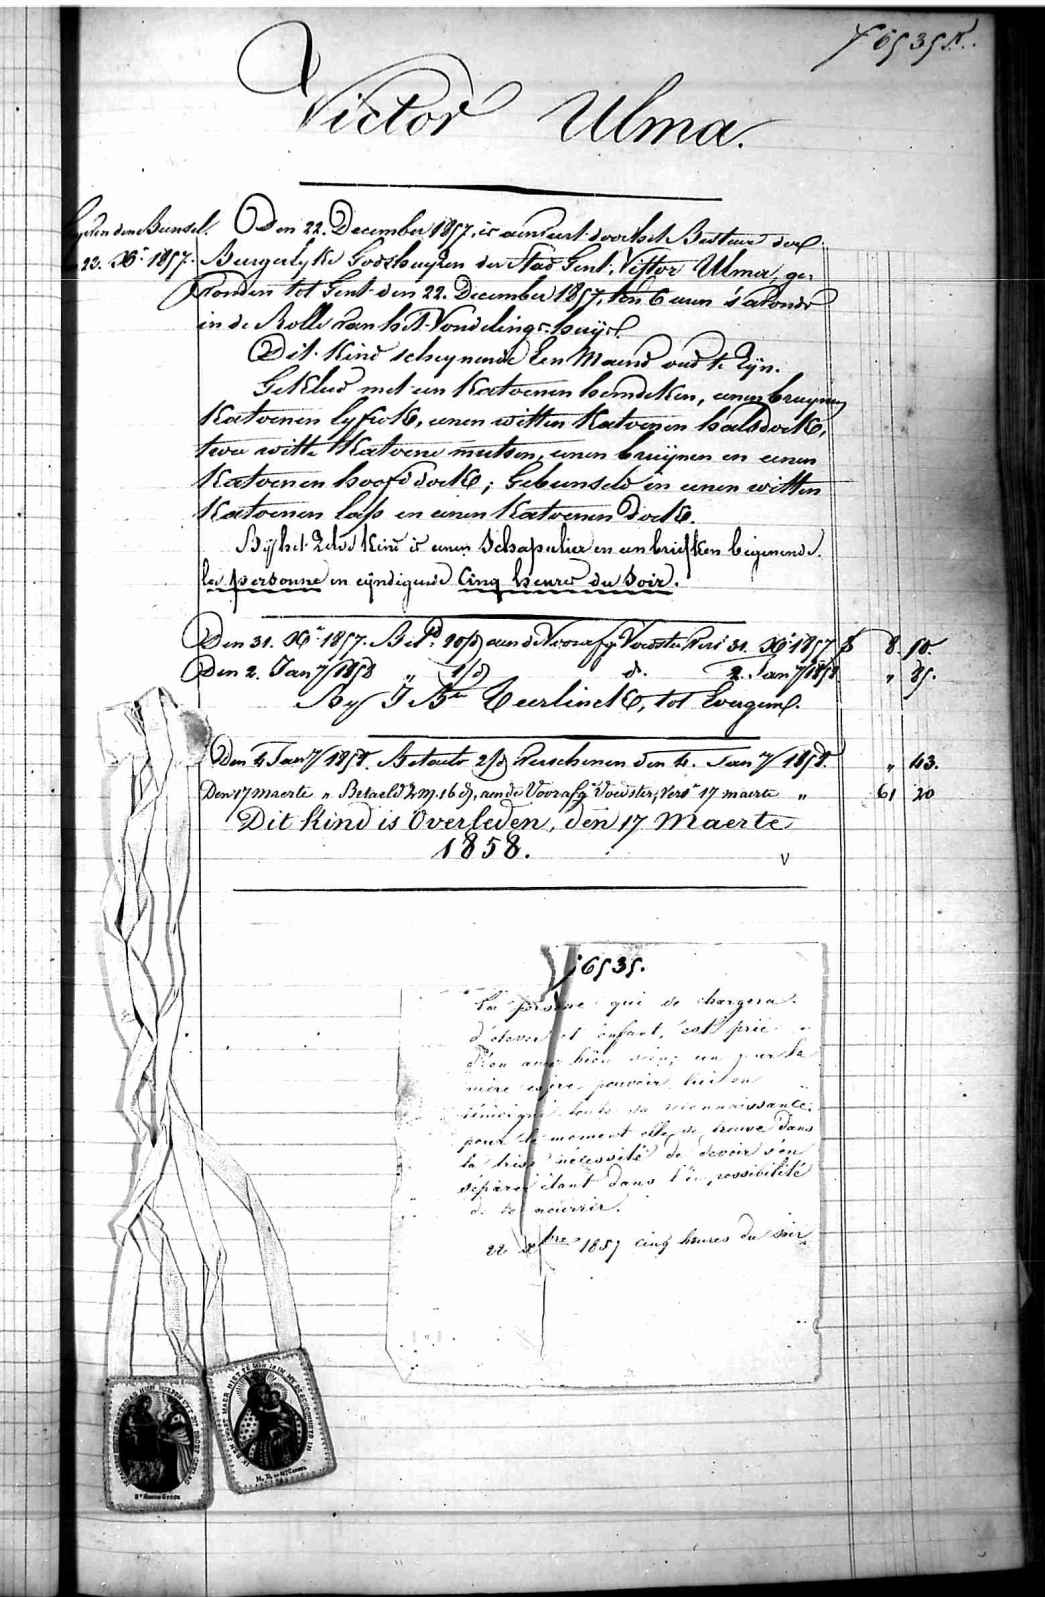 f 6535
Victor Ulma.
22. Xr 1857.
Den 22. December 1857, is aenveert door het Bestuer der
Burgerlyke Godshuyzen der Stad Gent, Victor Ulma, ge-
vonden tot Gent den 22. December 1857, ten 6 uren s'avonds
in de Rolle van het Vondelings-huys.
Dit Kind schynende Een Maend oud te zyn.
Gekleed met een Katoenen hemdeken, eenen bruynen
Katoenen lyfrok, eenen witten Katoenen halsdoek,
twee witte Katoene mutsen, eenen bruynen en eenen
Katoenen hoofddoek; Gebunseld in eenen witten
Katoenen laps en eenen Katoenen Doek.
By het Zelve Kind is eenen Schapulier en een briefken beginnende
la personne en eyndigende Cinq heures du Soir.
Den 31. Xr 1857. Bet.d 20/d aen de Voorafg. Voedster Vers. 31. Xr 1857 f 8. 50.
Den 2. Jany 1858 " 2/d d. 2. Jany 1858 " 85.
By J. Bte Teerlinck, tot Evergem.
Den 4 Jany 1858. Betaeld 2/d Verschenen den 4. Jany 1858. " 43.
Den 17 maerte " Betaeld 2 m. 16 d, aen de Voorafg. Voedster, Vers. 17 maerte " 61 20
Dit Kind is Overleden, den 17 Maerte
1858.
V
f 6535.
La persone qui se chargera
d'élever cet enfant, est prié
d'en avoir bien soin; un jour la
mère espère pouvoir lui en
témoigné toute sa reconnaissance;
pour le moment elle se trouve dans
la triste nécessité de devoir s'en
séparer étant dans l'impossibilité
de le nourrir.
22 Xbre 1857 cinq heures du soir